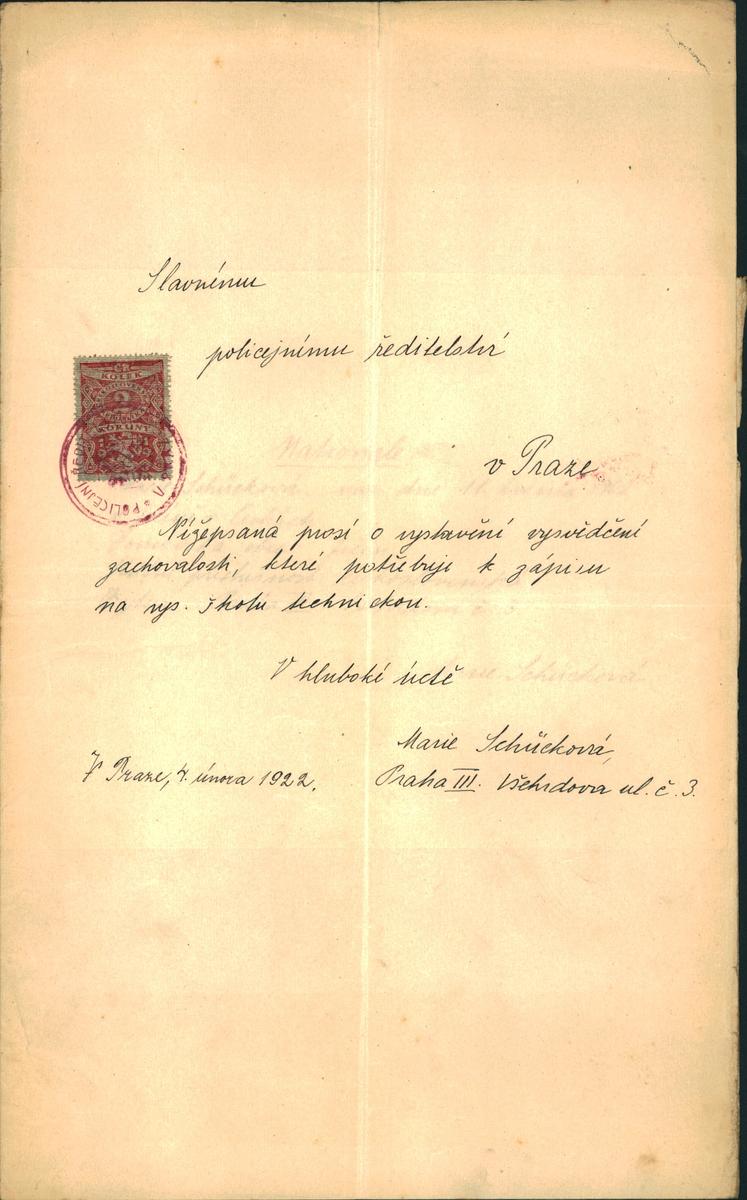 Slavnému
policejnímu ředitelství
KOLEK
2
KORUNY
POLICEJNÍ ŘED
v Praze.
Nížepsaná prosí o vystavění vysvědčení
zachovalosti, které potřebuji k zápisu
na vys. školu technickou.
V hluboké úctě
Marie Schückova,
V Praze, 4. února 1922.
Praha III. Všehrdova ul. č. 3.